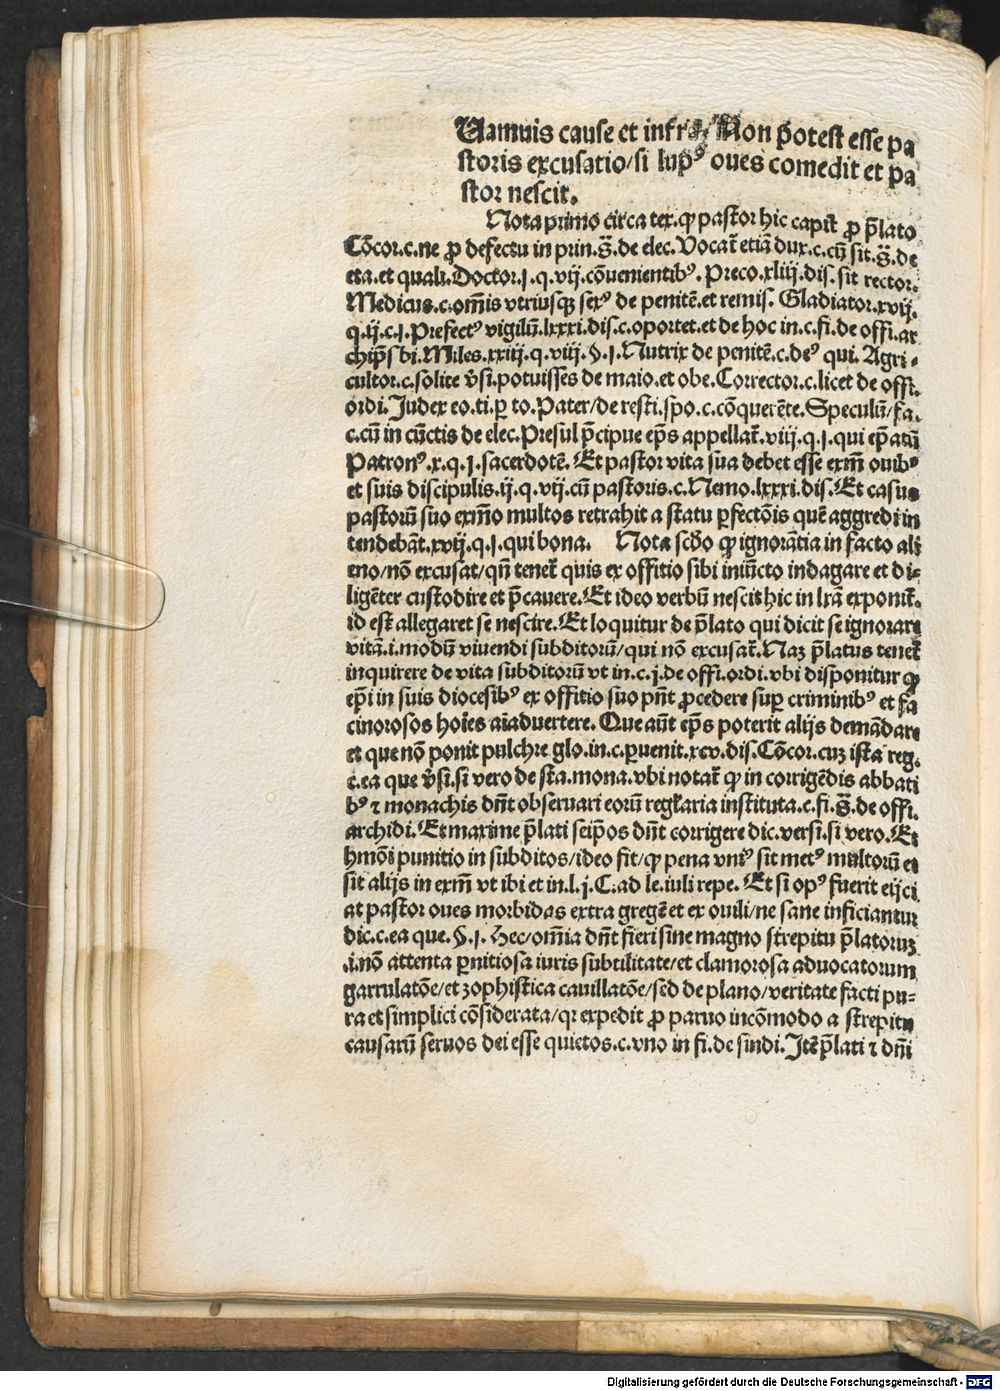 Uamuis cause et infra. Non p̄otest esse pa
storis excusatio/si lupꝰ oues comedit et pa
stor nescit.
Nota primo circa tex. ꝙ pastor hic capit̄ ꝓ p̄lato
Cōcor.c.ne ꝓ defectu in prin.s̄.de elec. Vocat̄ etiā dux.c.cū sit.s̄.de
eta.et quali. Doctor.j.q.vij.cōuenientibꝰ. Preco.xliij.dis.sit rector.
Medicus.c.om̄is vtriusqꝫ sexꝰ de penitē.et remis. Gladiator.xvij.
q.ij.c.j. Prefectꝰ vigilū.lxxxi.dis.c.oportet.et de hoc in.c.fi.de offi.ar
chip̄sbi. Miles.xxiij.q.viij.§.j. Nutrix de penitē.c.deꝰ qui. Agri-
cultor.c.solite v̄si.potuisses de maio.et obe. Corrector.c.licet de offi.
ordi. Judex eo.ti.ꝑ to. Pater/de resti.spo.c.cōquerēte. Speculū/fa.
c.cū in cūctis de elec. Presul p̄cipue ep̄s appellat̄.viij.q.j.qui ep̄atū
Patronꝰ.x.q.j.sacerdotē. Et pastor vita sua debet esse exm̄ ouibꝰ
et suis discipulis.ij.q.vij.cū pastoris.c.Nemo.lxxxi.dis. Et casus
pastorū suo exm̄o multos retrahit a statu ꝑfectōis quē aggredi in
tendebāt.xvij.q.j.qui bona. Nota scd̄o ꝙ ignorātia in facto ali
eno/nō excusat/qn̄ tenet̄ quis ex offitio sibi iniūcto indagare et di-
ligēter custodire et p̄cauere. Et ideo verbū nescit hic in lr̄a exponit̄.
id est allegaret se nescire. Et loquitur de p̄lato qui dicit se ignorare
vitā.i.modū viuendi subditorū/qui nō excusat̄. Naꝫ p̄latus tenet̄
inquirere de vita subditorū vt in.c.j.de offi.ordi.vbi disponitur ꝙ
ep̄i in suis diocesibꝰ ex offitio suo pn̄t ꝓcedere suꝑ criminibꝰ et fa
cinorosos hoīes aīaduertere. Que aūt ep̄s poterit alijs demādare
et que nō ponit pulchre glo.in.c.ꝑuenit.xcv.dis. Cōcor.cuꝫ ista reg.
c.ea que v̄si.si vero de sta.mona.vbi notat̄ ꝙ in corrigēdis abbati
bꝰ ⁊ monachis dn̄t obseruari eorū regl̄aria instituta.c.fi.s̄.de offi.
archidi. Et maxime p̄lati seip̄os dn̄t corrigere dic.versi.si vero. Et
hmōi punitio in subditos/ideo fit/ꝙ pena vniꝰ sit metꝰ multorū et
sit alijs in exm̄ vt ibi et in.l.j.C.ad le.iuli repe. Et si opꝰ fuerit eijci
at pastor oues morbidas extra gregē et ex ouili/ne sane inficiantur
dic.c.ea que.§.j. Hec/om̄ia dn̄t fieri sine magno strepitu p̄latoruꝫ
.i.nō attenta ꝑnitiosa iuris subtilitate/et clamorosa aduocatorum
garrulatōe/et zophistica cauillatōe/sed de plano/veritate facti pu-
ra et simplici cōsiderata/qꝛ expedit ꝓ paruo incōmodo a strepitu
causarū seruos dei esse quietos.c.vno in fi.de sindi. Itē p̄lati ⁊ dn̄i
Digitalisierung gefördert durch die Deutsche Forschungsgemeinschaft - DFG